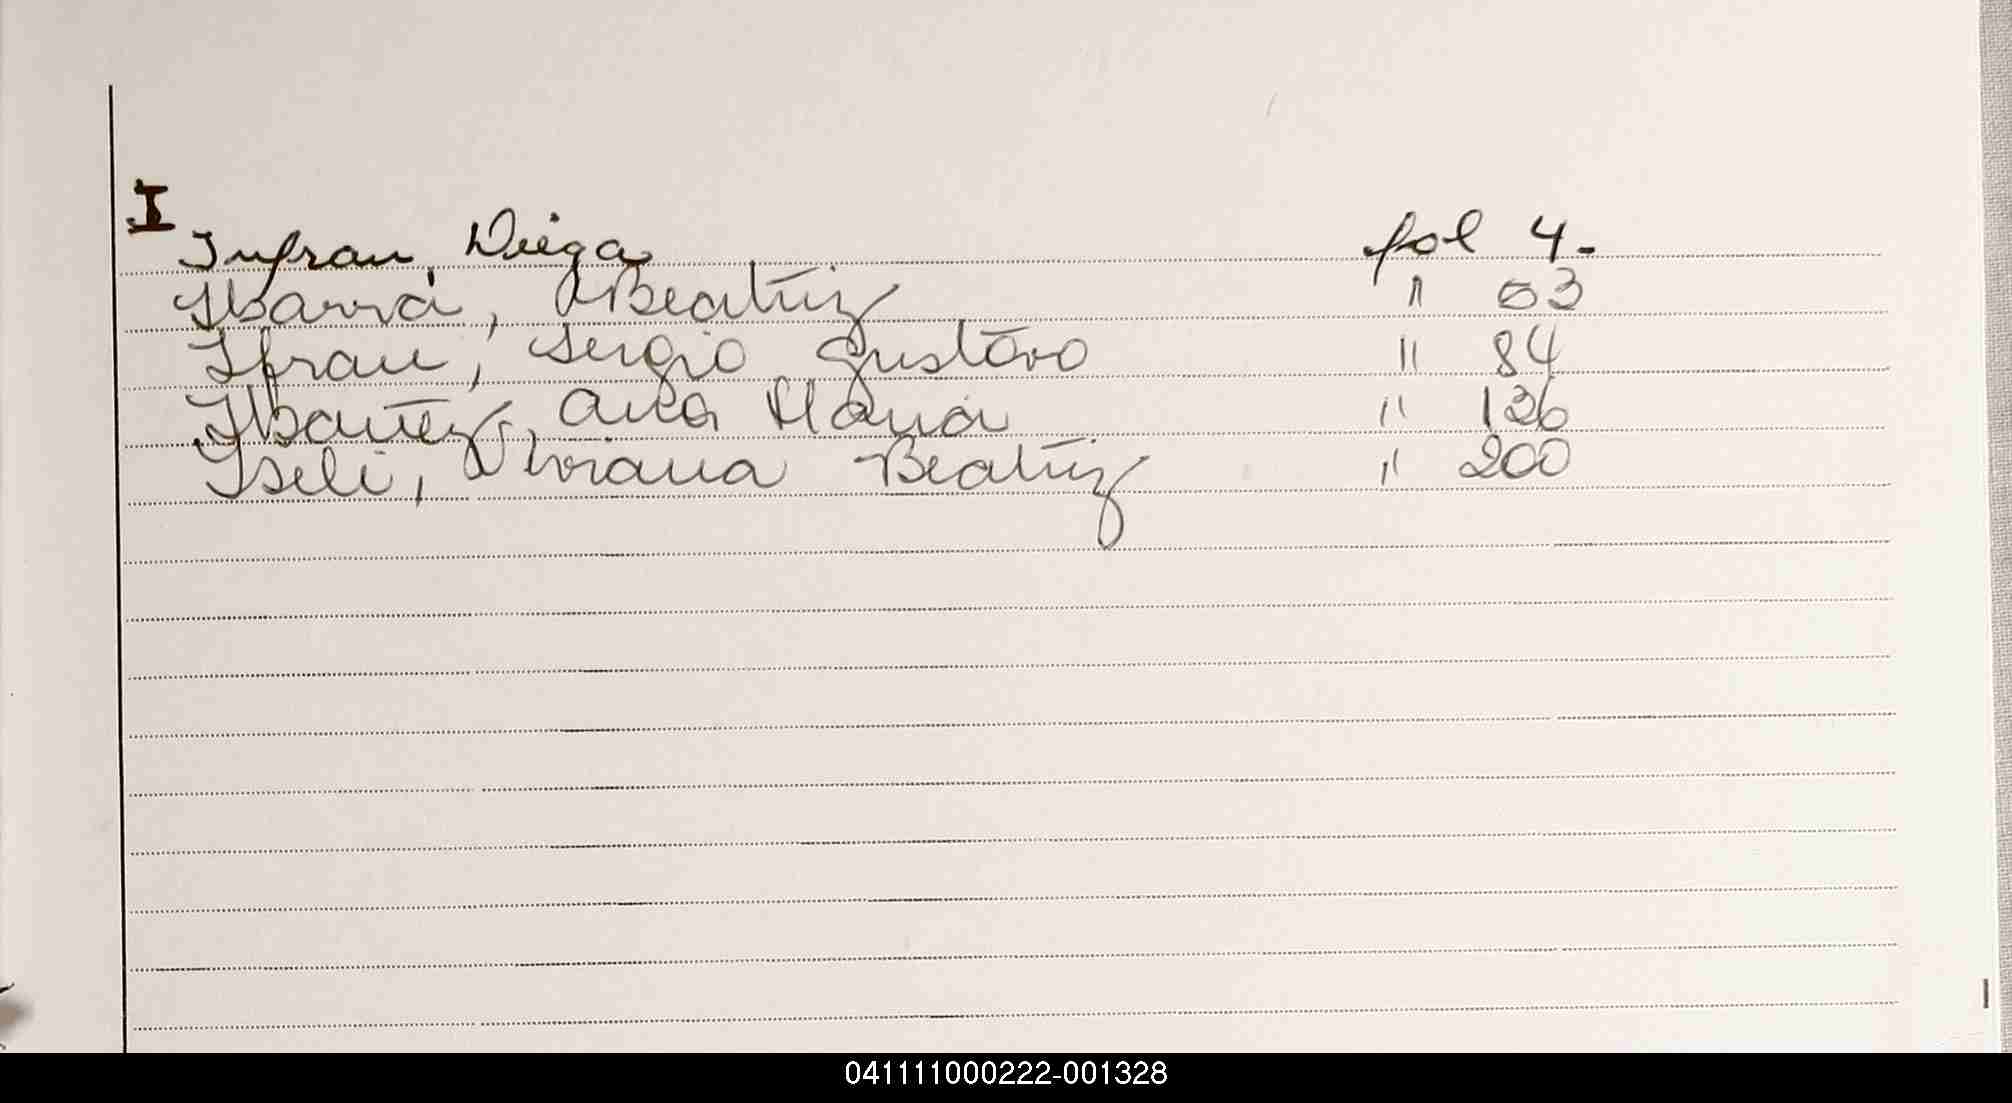 I
Infran, Diego fol 4.-
Ibarra, Beatriz " 53
Ifran, Sergio Gustavo " 84
Ibañez, Ana Maria " 136
Iseli, Viviana Beatriz " 200
041111000222-001328